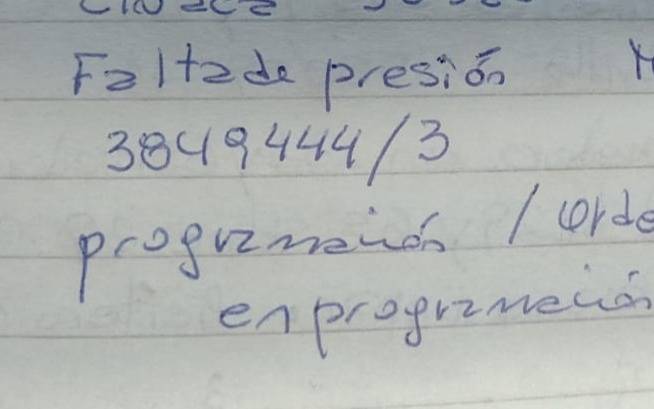 Falta de presión
3849444/3
programación / Orde
en programación